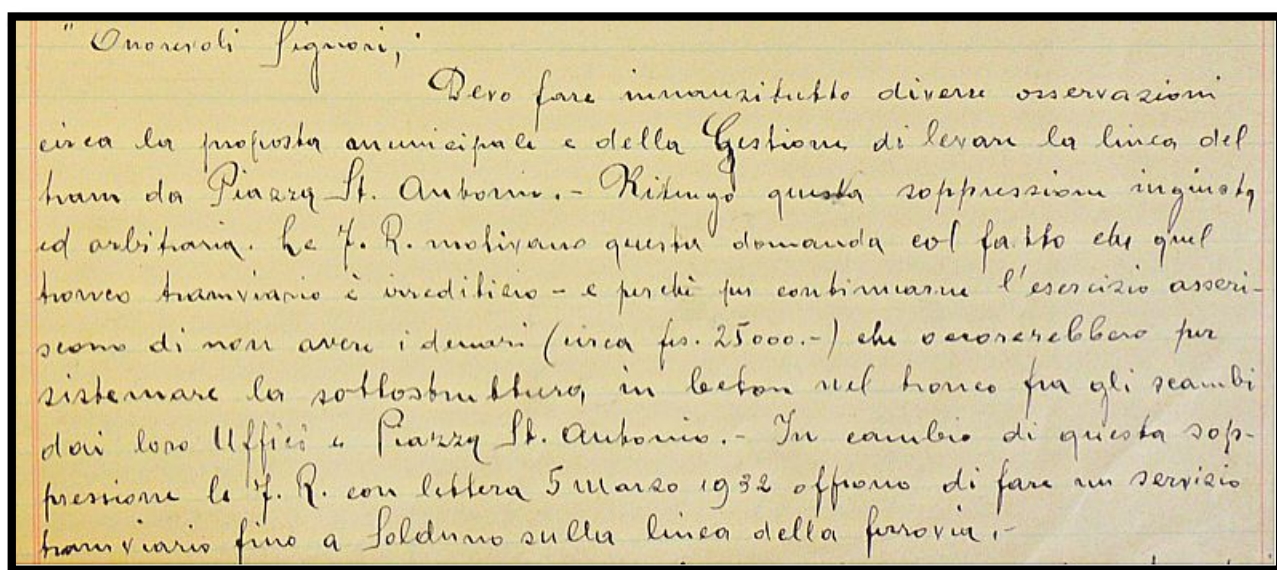 "Onorevoli Signori,
Devo fare innanzitutto diverse osservazioni
circa la proposta municipale e della Gestione di levare la linea del
tram da Piazza St. Antonio.- Ritengo questa soppressione ingiusta
ed arbitraria. Le F. R. motivano questa domanda col fatto che quel
tronco tramviario è irredditizio - e perchè per continuarne l'esercizio asseri-
scono di non avere i denari (circa frs. 25000.-) che occorerebbero per
sistemare la sottostruttura, in beton nel tronco fra gli scambi
dai loro Uffici e Piazza St. Antonio.- In cambio di questa sop-
pressione le F. R. con lettera 5 marzo 1932 offrono di fare un servizio
tramviario fino a Solduno sulla linea della ferrovia.-